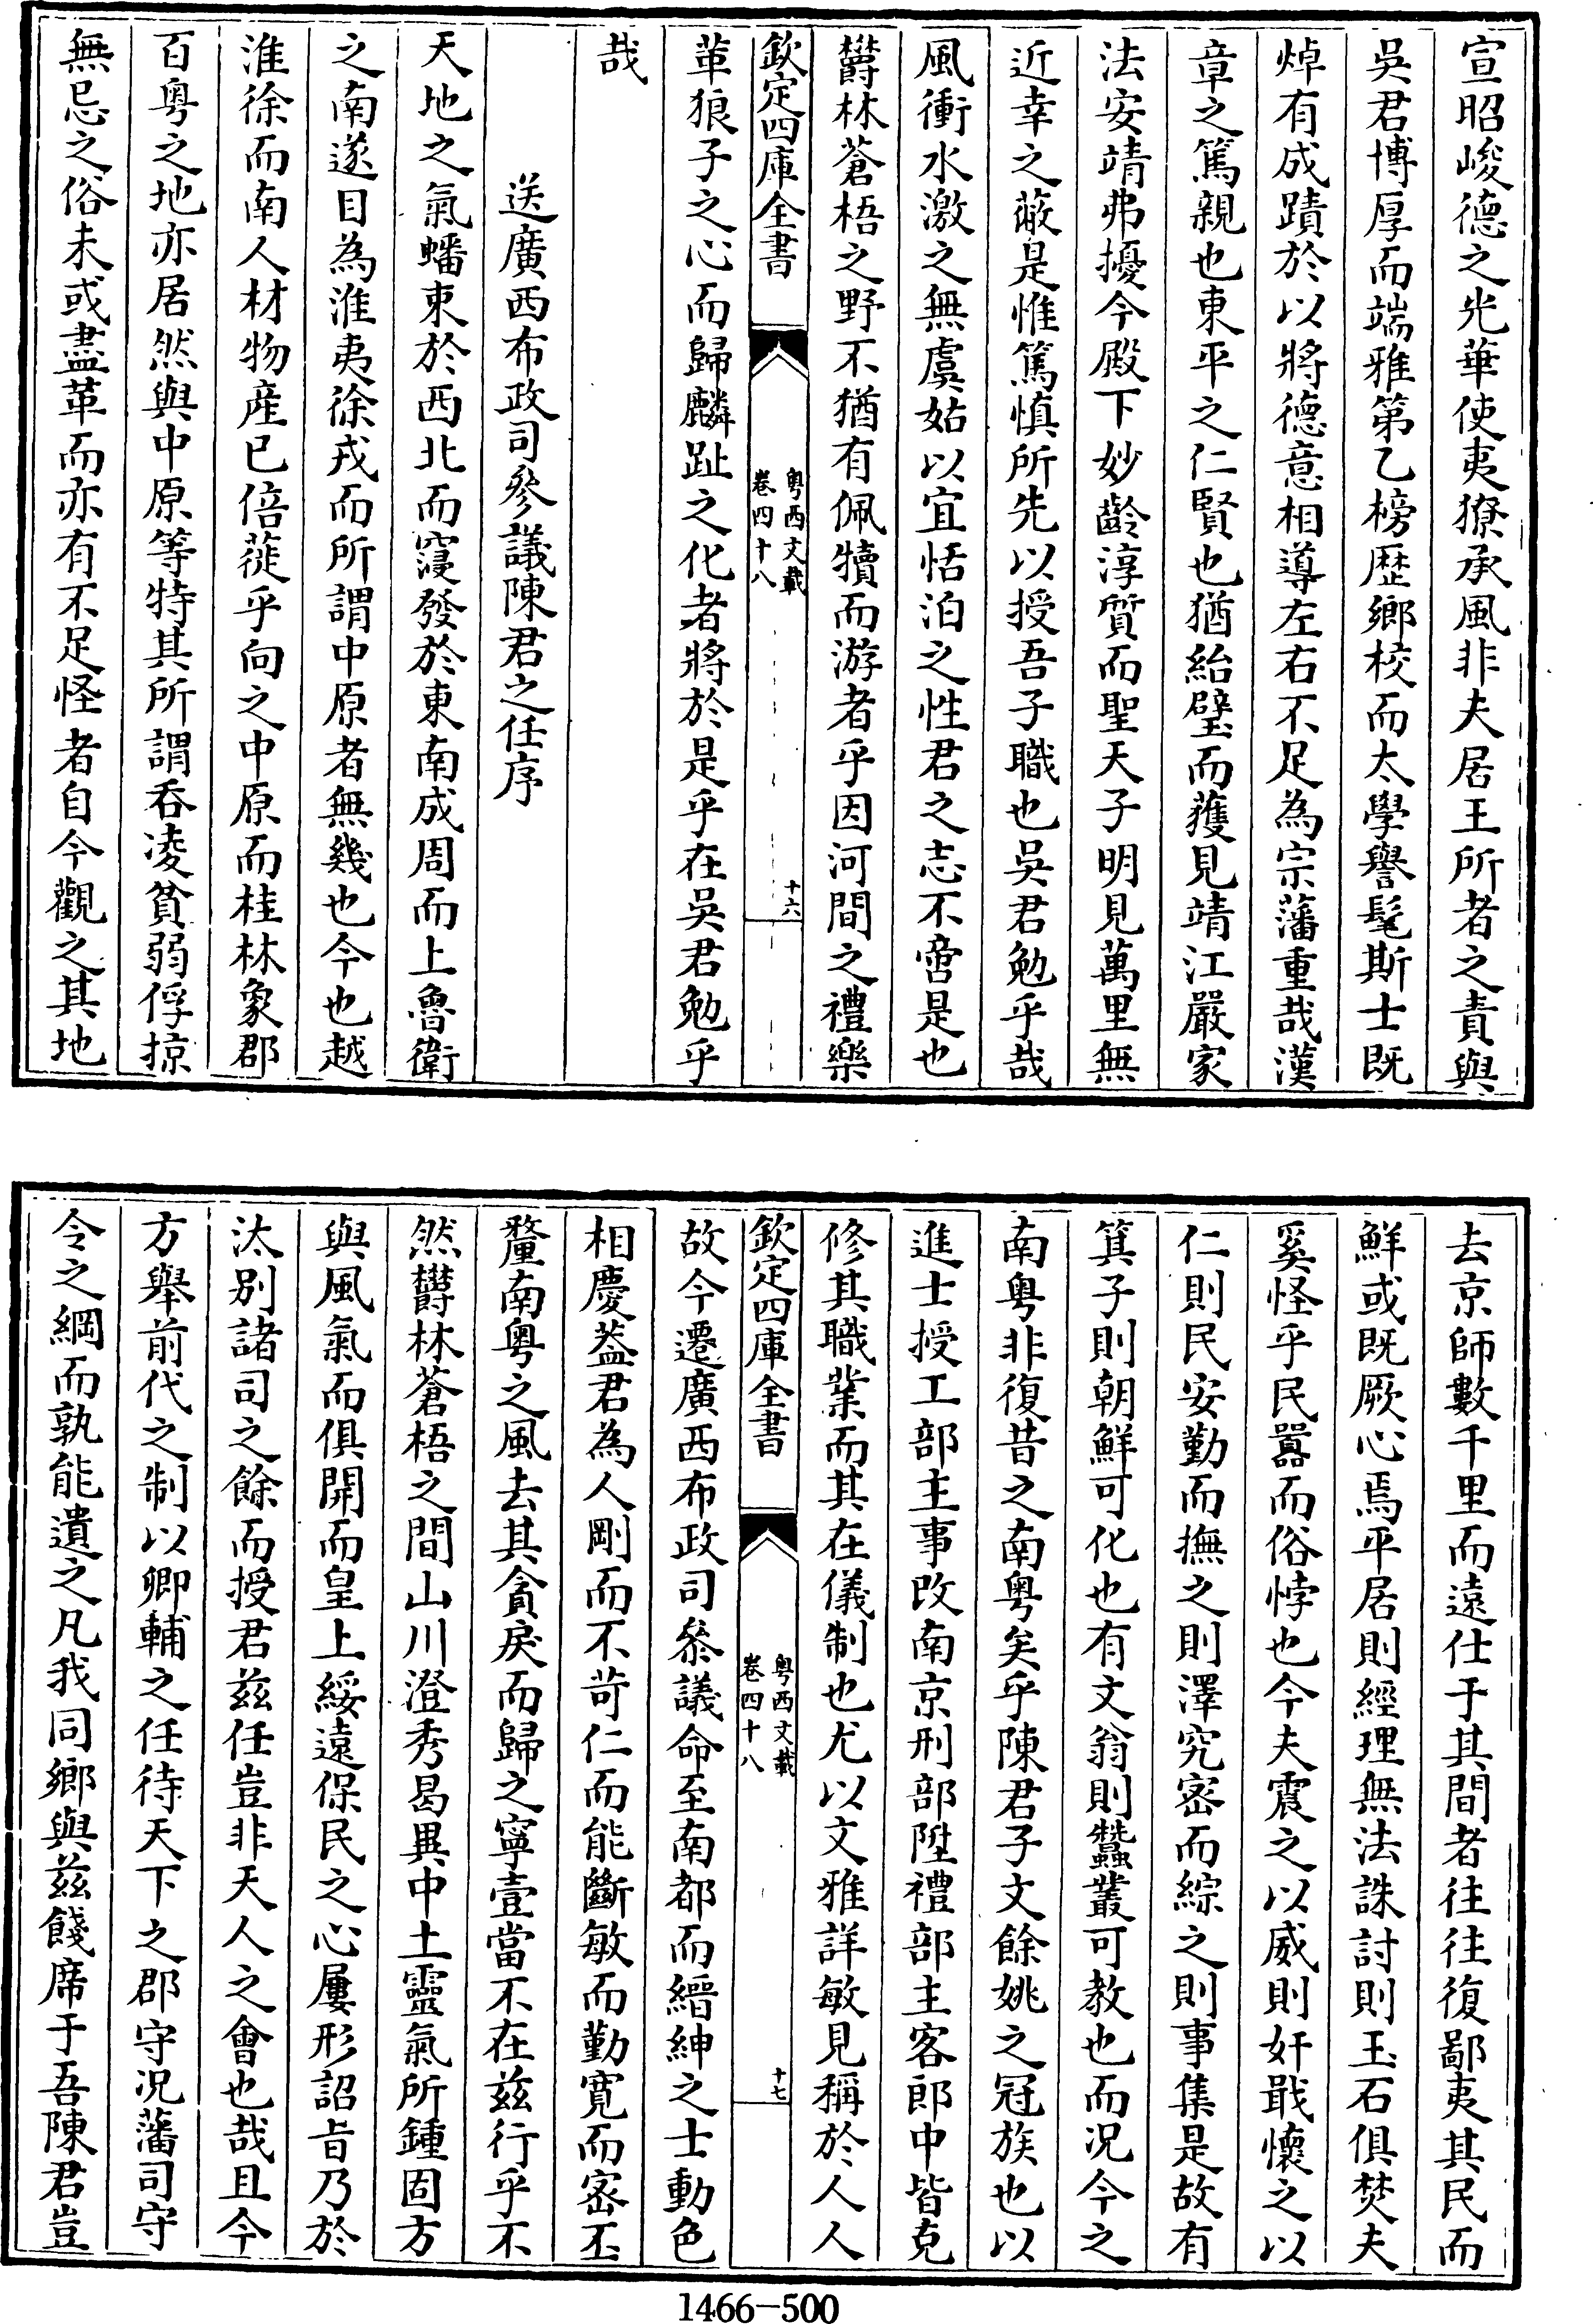 宣昭峻德之光華使夷獠承風非夫居王所者之責與
吳君博厚而端雅第乙榜歴鄉校而太學譽髦斯士既
焯有成蹟於以將德意相導左右不足為宗藩重哉漢
章之篤親也東平之仁賢也猶紿璧而獲見靖江嚴家
法安靖弗擾今殿下妙齡淳質而聖天子明見萬里無
近幸之蔽是惟篤慎所先以授吾子職也吳君勉乎哉
風衝水激之無虞姑以宜恬泊之性君之志不啻是也
欝林蒼梧之野不猶有佩犢而游者乎因河間之禮樂
欽定四庫全書
粤西文載
卷四十八
十六
革狼子之心而歸麟趾之化者將於是乎在吳君勉乎
哉
送廣西布政司參議陳君之任序
天地之氣蟠束於西北而寖發於東南成周而上魯衛
之南遂目為淮夷徐戎而所謂中原者無幾也今也越
淮徐而南人材物産已倍蓰乎向之中原而桂林象郡
百粤之地亦居然與中原等特其所謂吞凌貧弱俘掠
無忌之俗未或盡革而亦有不足怪者自今觀之其地
去京師數千里而遠仕于其間者往往復鄙夷其民而
鮮或既厥心焉平居則經理無法誅討則玉石俱焚夫
奚怪乎民嚚而俗悖也今夫震之以威則奸戢懷之以
仁則民安勤而撫之則澤究密而綜之則事集是故有
箕子則朝鮮可化也有文翁則蠶叢可教也而况今之
南粤非復昔之南粤矣乎陳君子文餘姚之冠族也以
進士授工部主事改南京刑部陞禮部主客郎中皆克
修其職業而其在儀制也尤以文雅詳敏見稱於人人
欽定四庫全書
粤西文載
卷四十八
十七
故今遷廣西布政司叅議命至南都而縉紳之士動色
相慶葢君為人剛而不苛仁而能斷敏而勤寛而密丕
釐南粤之風去其貪戾而歸之寧壹當不在兹行乎不
然欝林蒼梧之間山川澄秀曷異中土靈氣所鍾固方
與風氣而俱開而皇上綏遠保民之心屢形詔旨乃於
汰別諸司之餘而授君兹任豈非天人之會也哉且今
方舉前代之制以卿輔之任待天下之郡守况藩司守
令之綱而孰能遺之凡我同鄉與兹餞席于吾陳君豈
1466-500